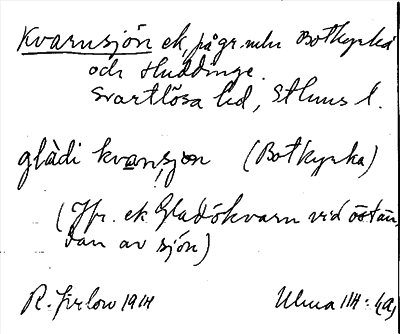 Kvarnsjön ek, på gr. mln Botkyrka
och Huddinge.
Svartlösa hd, Sthms l.
glàdi kvansjon (Botkyrka)
(Jfr. ek. Gladökvarn vid östän-
dan av sjön)
R. 1914
Ulma 114: 4a,